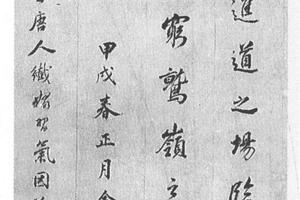 進道之場臨
窮鷲嶺之
甲戌春正月
唐人纖媚習氣因